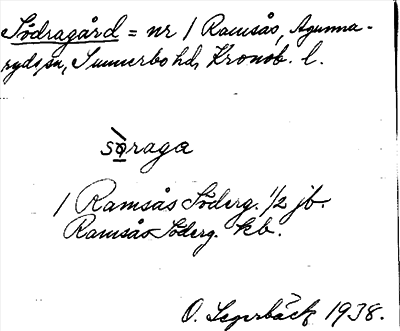 Södragård = nr 1 Ramsås, Agunna-
ryds sn, Sunnerbo hd, Kronob. l.
sǫ̀raga
1 Ramsås Söderg. 1/2 jb.
Ramsås Söderg. kb.
O. Segerbäck, 1938.